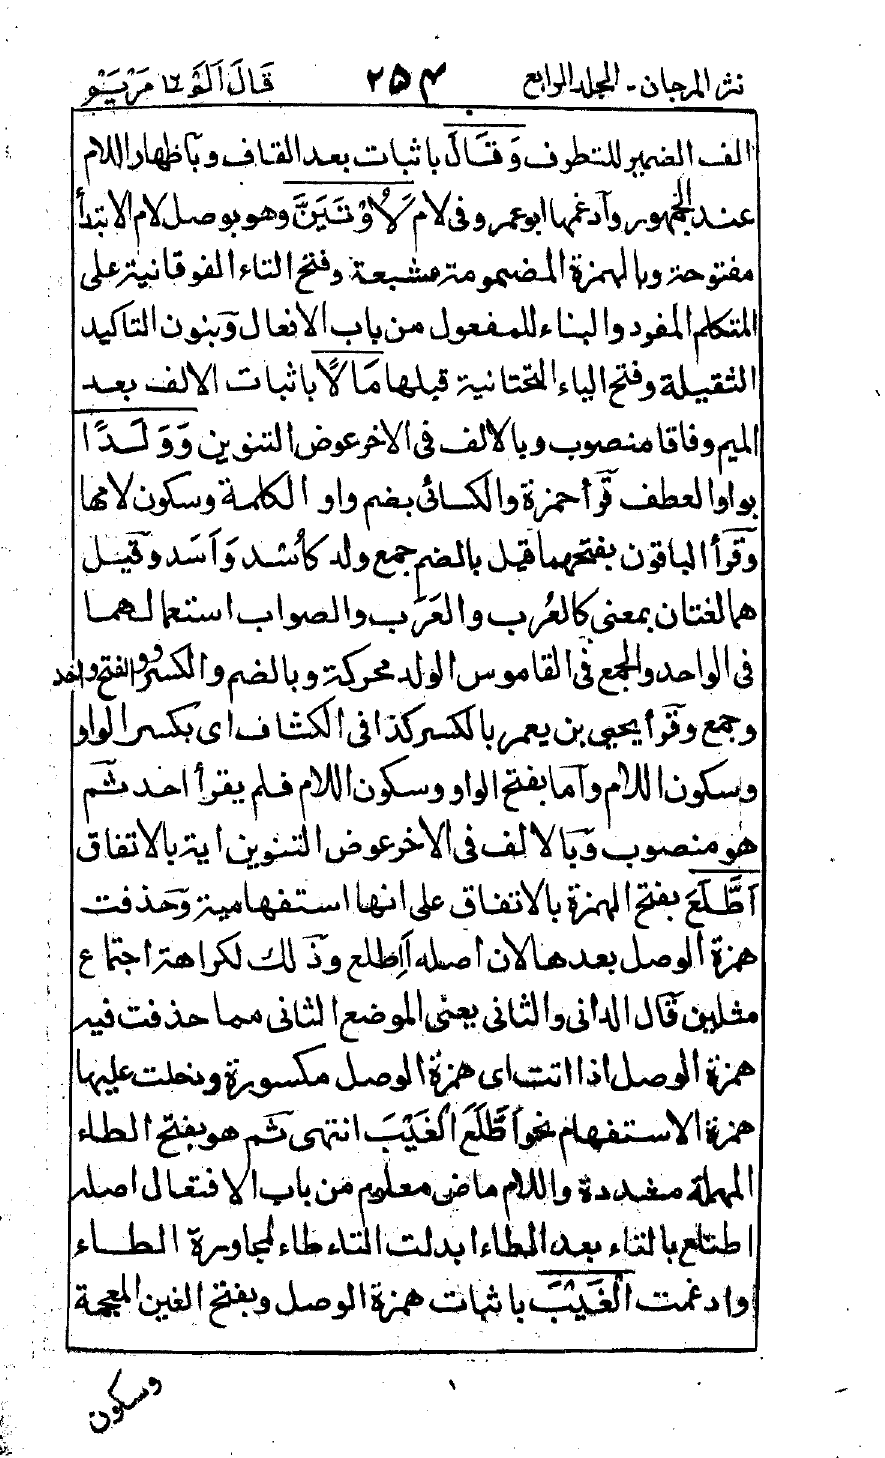 نثر المرجان - المجلد الرابع ٢٥٤ قَالَ اَلَمْ ١٦ مَرْيَمَ
الف الضمير للتطرف وَقَالَ باثبات بعد القاف وباظهار اللام
عند الجمهور وآدغمها ابوعمرو وفى لام لَاُوْتَيَنَّ وهو بوصل لام الابتدأ
مفتوحة وبالهمزة المضمومة مشبعة وفتح التاء الفوقانية على
المتكلم المفرد والبناء للمفعول من باب الافعال وبنون التاكيد
الثقيلة وفتح الياء التحتانية قبلها مَالًا باثبات الالف بعد
الميم وفاقا منصوب وبالالف فى الاخر عوض التنوين وَوَلَدًا
بواو العطف قرأ حمزة والكسائى بضم واو الكلمة وسكون لامها
وقرأ الباقون بفتحهما قيل بالضم جمع ولد كاُسْد وَاَسَد وقيل
هما لغتان بمعنى كالعُرب والعَرَب والصواب استعمالهما
فى الواحد والجمع فى القاموس الولد محركة وبالضم والكسر والفتح واحد
وجمع وقرأ يحيى بن يعمر بالكسر كذا فى الكشاف اى بكسر الواو
وسكون اللام وآما بفتح الواو وسكون اللام فلم يقرأ احد ثم
هو منصوب وَبالالف فى الاخر عوض التنوين اية بالاتفاق
اَطَّلَعَ بفتح الهمزة بالاتفاق على انها استفهامية وَحذفت
همزة الوصل بعدها لان اصله أَاِطلع وذلك لكراهة اجتماع
مثلين قال الدانى والثانى يعنى الموضع الثانى مما حذفت فيه
همزة الوصل اذا اتت اى همزة الوصل مكسورة ودخلت عليها
همزة الاستفهام نحو اَطَّلَعَ الْغَيْبَ انتهى ثم هو بفتح الطاء
المهملة مشددة واللام ماض معلوم من باب الافتعال اصله
اطتلع بالتاء بعد الطاء ابدلت التاء طاء لمجاورة الطاء
وادغمت الْغَيْبَ باثبات همزة الوصل وبفتح الغين المعجمة
وسكون